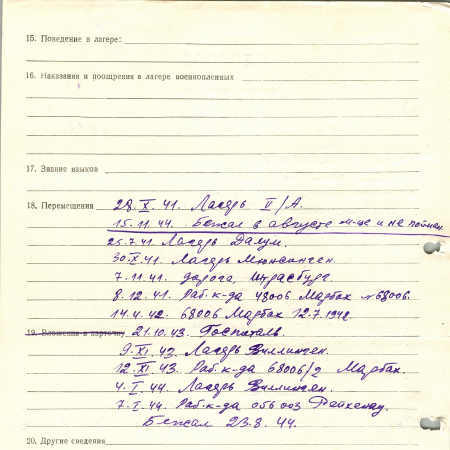 15. Поведение в лагере:
16. Наказания и поощрения в лагере военнопленных
17. Знание языков
18. Перемещения 28.X.41. Лагерь II/А.
15.11.44. Бежал в августе м-це и не пойман.
25.7.41 Лагерь Далум.
30.X.41 Лагерь Мюнсинген.
7.11.41. дорога, Штрасбург.
8.12.41. Раб.к-да 48006 Марбах №68006.
14.4.42. 68006 Марбах 12.7.1942.
19. Вложения в карточку 21.10.43. Госпиталь.
9.XI.43. Лагерь Виллинген.
12.XI.43. Раб.к-да 68006/2 Марбах.
4.I.44. Лагерь Виллинген.
7.I.44. Раб.к-да 056003 Рейхенау.
Бежал 23.8.44.
20. Другие сведения